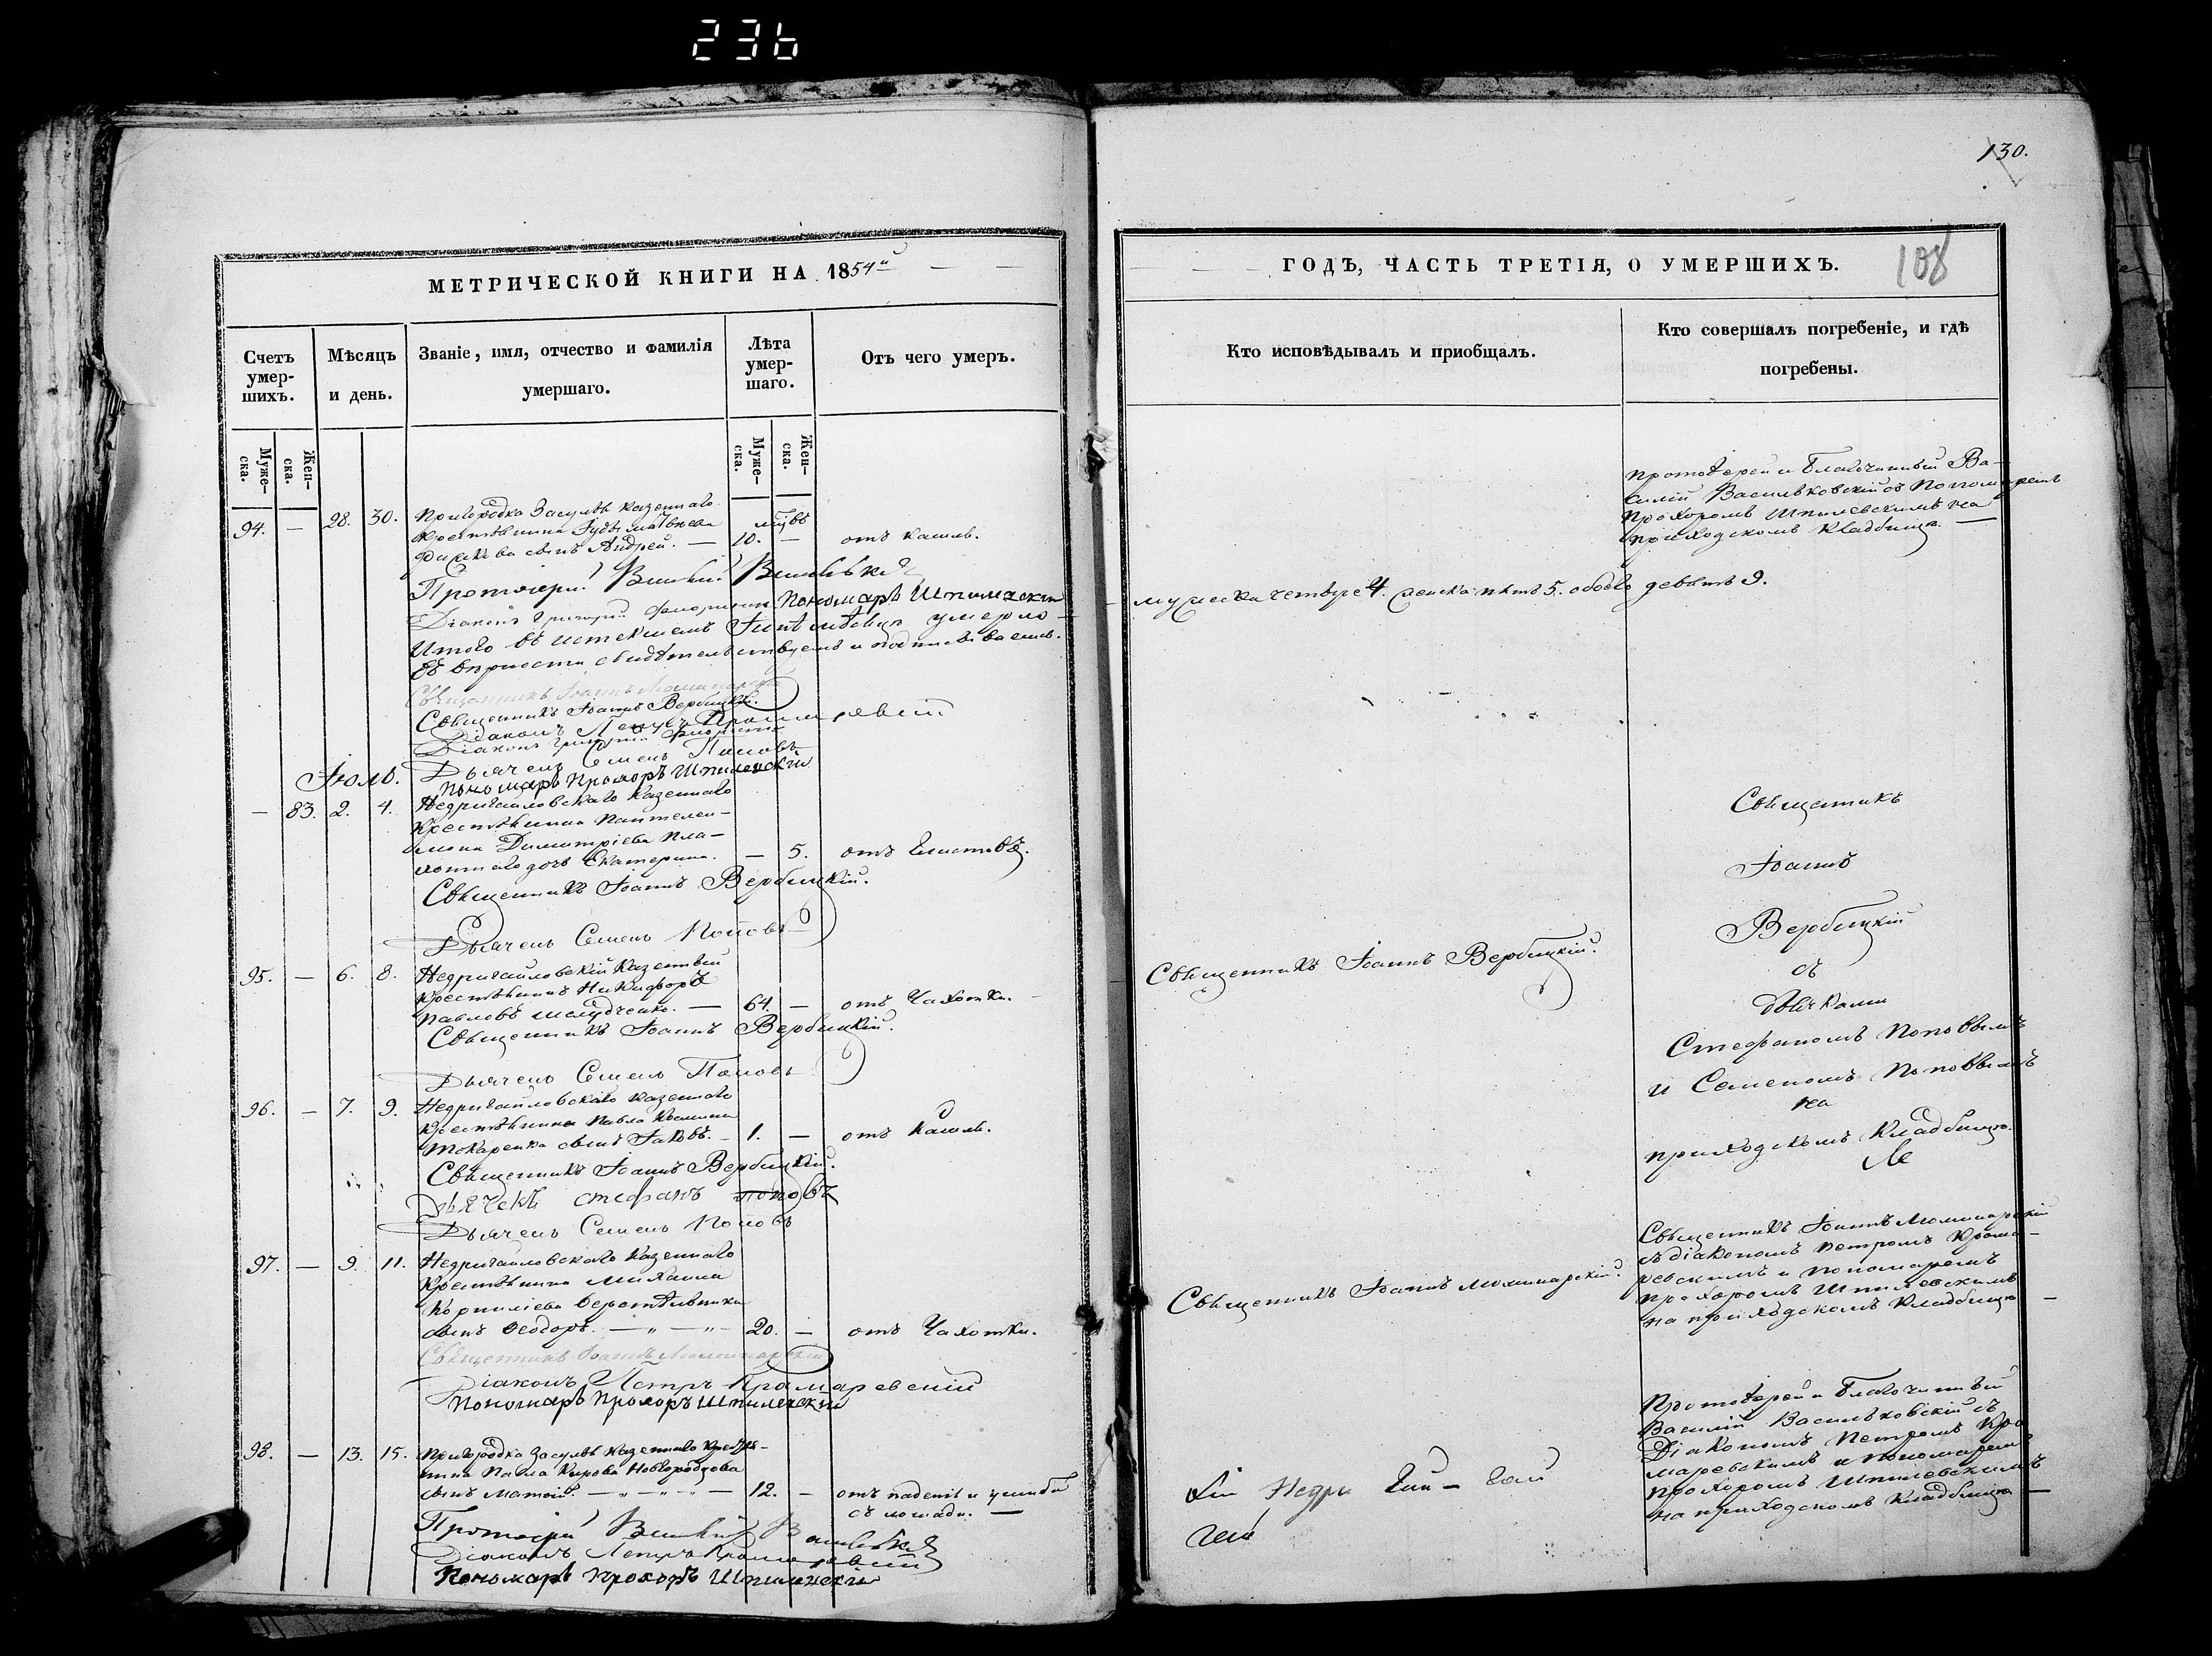 236
130.
МЕТРИЧЕСКОЙ КНИГИ НА 1854й
Счетъ умер-шихъ.
Мѣсяцъ и день.
Званіе, имя, отчество и фамилія умершаго.
Лѣта умер-шаго.
Отъ чего умеръ.
Муже-ска.
Жен-ска.
Муже-ска.
Жен-ска.
94. — 28. 30. Пригородка Засулья казеннаго
крестьянина
сынъ Андрей. — 10. — отъ кашля.
Протоіерей Василій Васильковскій
Діаконъ Григорій Пономарь Шпилевскій
Итого въ истекшемъ Іюнѣ мѣсяцѣ умерло
Въ вѣрности свидѣтельствуемъ и подписываемся.
Священникъ Іоаннъ
Священникъ Іоаннъ Вербицкій.
Діаконъ Петръ Крамаревскій
Діаконъ Григорій
Дьячекъ Семенъ Поповъ
Пономарь Прохоръ Шпилевскій
Іюль.
— 83. 2. 4. Недригайловскаго казеннаго
крестьянина Пантелеи-
мона Димитріева Пла-
хотнаго дочь Екатерина. — 5. отъ Глистовъ.
Священникъ Іоаннъ Вербицкій.
Дьячекъ Семенъ Поповъ
95. — 6. 8. Недригайловскій казенный
крестьянинъ Никифоръ
Павловъ — 64. — отъ Чахотки.
Священникъ Іоаннъ Вербицкій.
Дьячекъ Семенъ Поповъ
96. — 7. 9. Недригайловскаго казеннаго
крестьянина Павла
Токаренка сынъ Іаковъ. — 1. — отъ Кашля.
Священникъ Іоаннъ Вербицкій.
Дьячекъ Стефанъ Поповъ
Дьячекъ Семенъ Поповъ
97. — 9. 11. Недригайловскаго казеннаго
крестьянина Михаила
Корниліева
сынъ Ѳеодоръ. — „ — „ — 20. — отъ Чахотки.
Священникъ Іоаннъ
Діаконъ Петръ Крамаревскій
Пономарь Прохоръ Шпилевскій
98. — 13. 15. Пригородка Засулья казеннаго крестья-
нина Павла Новгородцова
сынъ Матѳій. — „ — „ — 12. — отъ паденія и ушиба
съ лошади. —
Протоіерей Василій Васильковскій
Діаконъ Петръ Крамаревскій
Пономарь Прохоръ Шпилевскій
ГОДЪ, ЧАСТЬ ТРЕТІЯ, О УМЕРШИХЪ.
108
Кто исповѣдывалъ и пріобщалъ.
Кто совершалъ погребеніе, и гдѣ погребены.
Протоіерей и Благочинный Ва-
силій Васильковскій съ Пономаремъ
Прохоромъ Шпилевскимъ на
приходскомъ кладбищѣ. —
мужеска четыре 4. женска пять 5. обоего девять 9.
Священникъ
Іоаннъ
Вербицкій
съ
дьячками
Стефаномъ Поповымъ
и Семеномъ Поповымъ
на
приходскомъ кладбищѣ.
Священникъ Іоаннъ Вербицкій.
Священникъ Іоаннъ
съ діакономъ Петромъ Крама-
ревскимъ и пономаремъ
Прохоромъ Шпилевскимъ
на приходскомъ кладбищѣ —
Священникъ Іоаннъ
Протоіерей и Благочинный
Василій Васильковскій съ
Діакономъ Петромъ Кра
маревскимъ и пономаремъ
Прохоромъ Шпилевскимъ
на приходскомъ кладбищѣ —